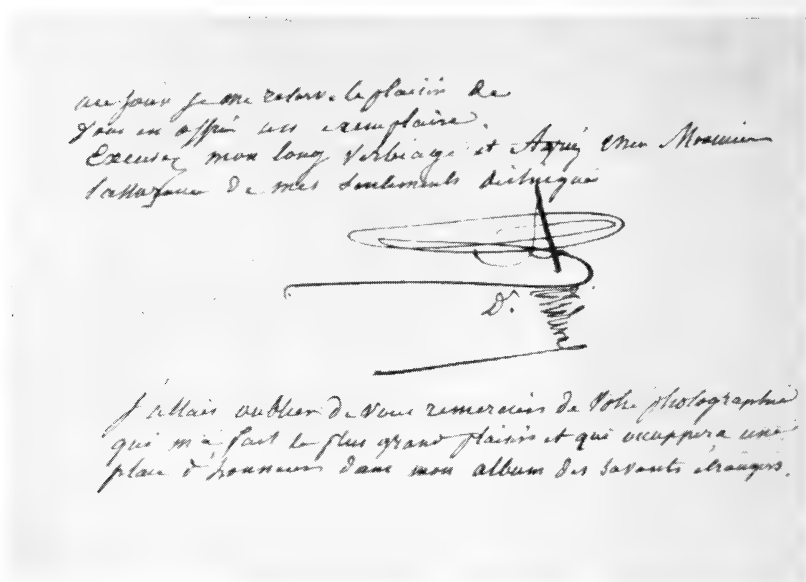 au jour je me reserve le plaisir de
vous en offrir un exemplaire.
Excusez mon long verbiage et Agréez Monsieur
l'assurance de mes sentiments distingués
Dr.
J'allais oublier de vous remercier de votre photographie
qui m'a fait le plus grand plaisir et qui occuppera une
place d'honneur dans mon album des savants étrangers.